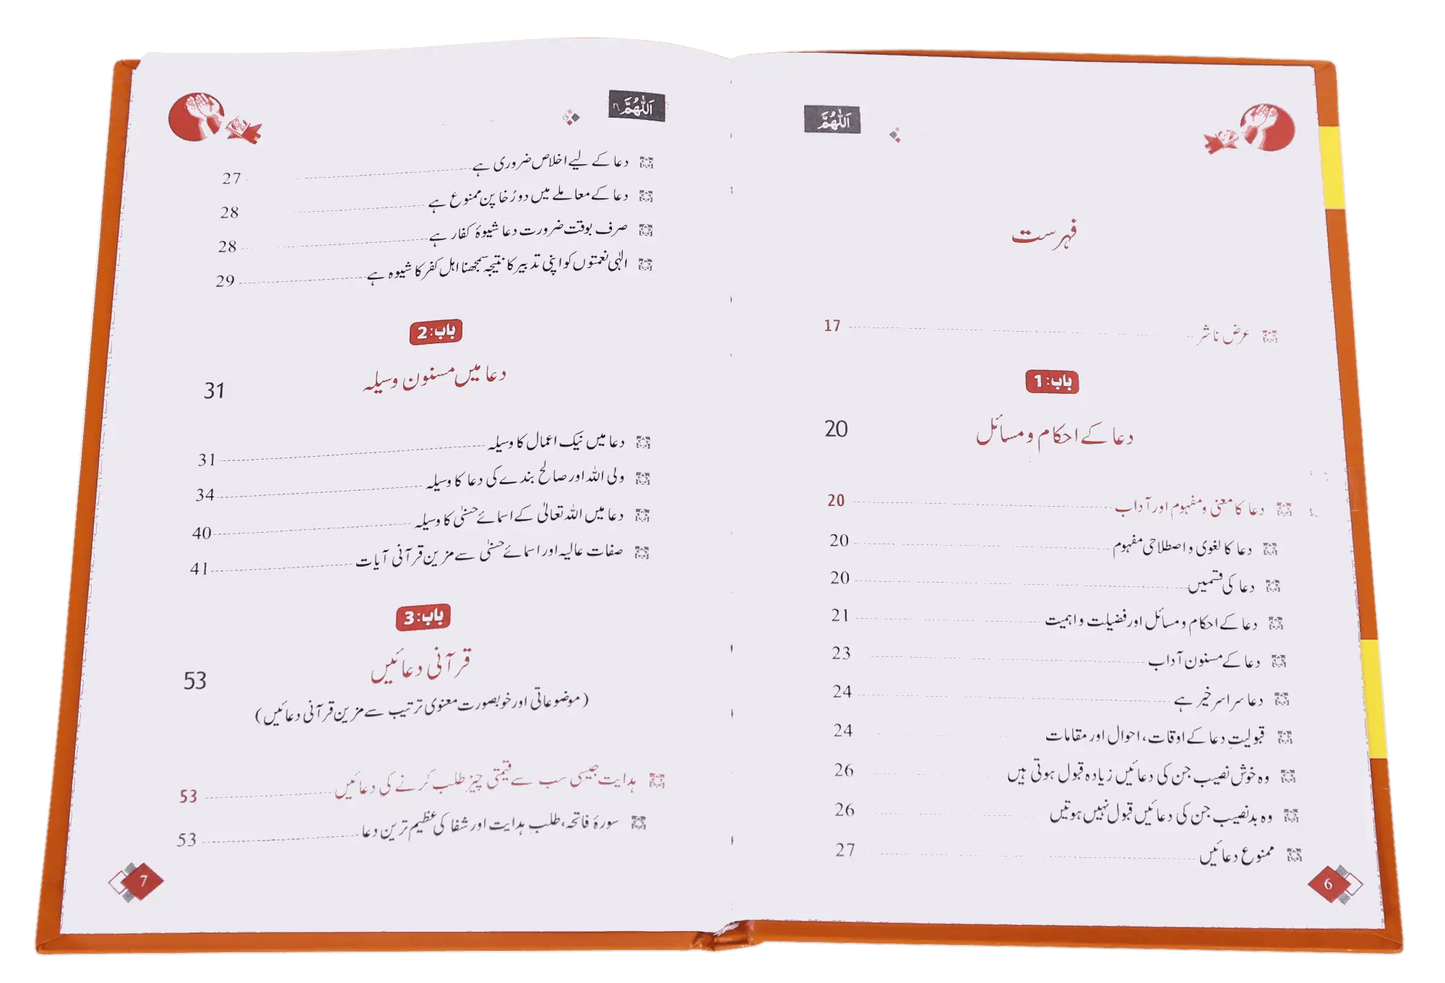 اَللّٰهُمَّ
فہرست
عرض ناشر 17
باب: 1
دعا کے احکام و مسائل 20
دعا کا معنی و مفہوم اور آداب 20
دعا کا لغوی و اصطلاحی مفہوم 20
دعا کی قسمیں 20
دعا کے احکام و مسائل اور فضیلت و اہمیت 21
دعا کے مسنون آداب 23
دعا سراسر خیر ہے 24
قبولیتِ دعا کے اوقات، احوال اور مقامات 24
وہ خوش نصیب جن کی دعائیں زیادہ قبول ہوتی ہیں 26
وہ بدنصیب جن کی دعائیں قبول نہیں ہوتیں 26
ممنوع دعائیں 27
6
اَللّٰهُمَّ
دعا کے لیے اخلاص ضروری ہے 27
دعا کے معاملے میں دوڑخا پن ممنوع ہے 28
صرف بوقت ضرورت دعا شیوۂ کفار ہے 28
الٰہی نعمتوں کو اپنی تدبیر کا نتیجہ سمجھنا اہل کفر کا شیوہ ہے 29
باب: 2
دعا میں مسنون وسیلہ 31
دعا میں نیک اعمال کا وسیلہ 31
ولی اللہ اور صالح بندے کی دعا کا وسیلہ 34
دعا میں اللہ تعالیٰ کے اسمائے حسنیٰ کا وسیلہ 40
صفات عالیہ اور اسمائے حسنیٰ سے مزین قرآنی آیات 41
باب: 3
قرآنی دعائیں 53
(موضوعاتی اور خوبصورت معنوی ترتیب سے مزین قرآنی دعائیں)
ہدایت جیسی سب سے قیمتی چیز طلب کرنے کی دعائیں 53
سورۂ فاتحہ، طلب ہدایت اور شفا کی عظیم ترین دعا 53
7